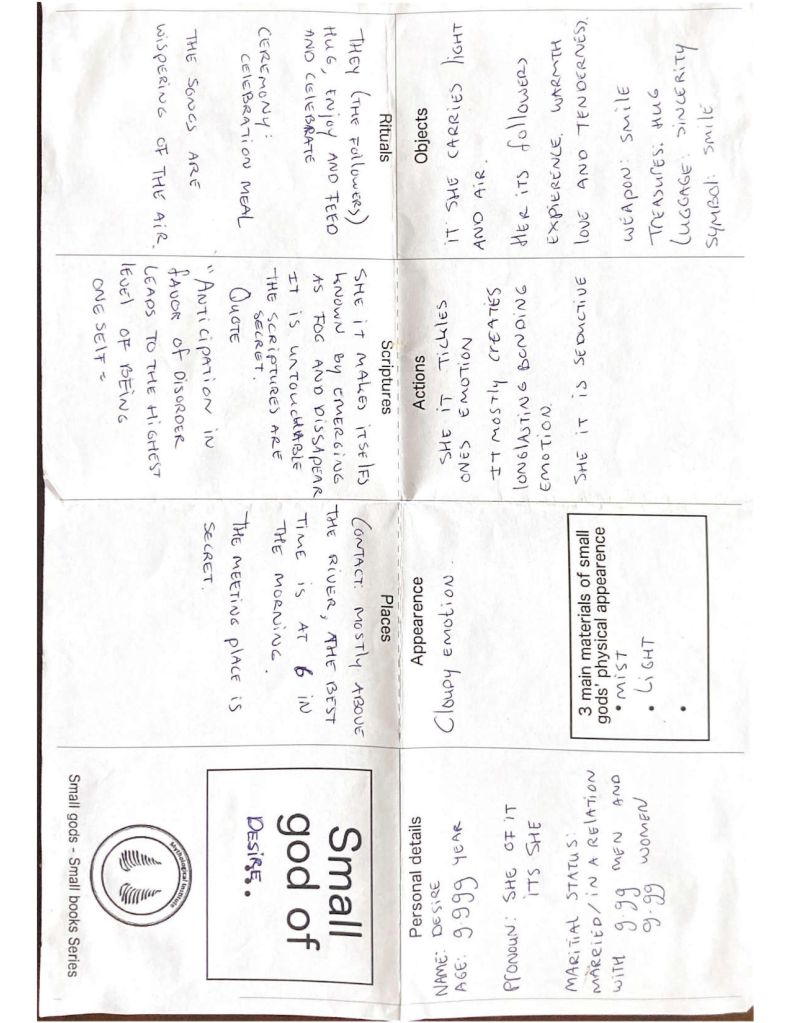 Small
god of
DESIRE.
Mythological Institute
Small gods - Small books Series
Personal details
NAME: DESIRE
AGE: 9.999 YEAR
PRONOUN: SHE OF IT
ITS SHE
MARITIAL STATUS:
MARRIED / IN A RELATION
WITH 9.99 MEN AND
9.99 WOMEN
Appearence
CLOUDY EMOTION.
3 main materials of small
gods' physical appearence
• MIST
• LIGHT
•
Actions
SHE IT TICKLES
ONES EMOTION
IT MOSTLY CREATES
LONGLASTING BONDING
EMOTION.
SHE IT IS SEDUCTIVE
Objects
IT SHE CARRIES LIGHT
AND AIR.
HER ITS FOLLOWERS
EXPIERENCE WARMTH
LOVE AND TENDERNES).
WEAPON: SMILE
TREASURES: HUG
LUGGAGE: SINCERITY
SYMBOL: SMILE
Rituals
THEY (THE FOLLOWERS)
HUG, ENJOY AND FEED
AND CELEBRATE
CEREMONY:
CELEBRATION MEAL
THE SONGS ARE
WISPERING OF THE AIR.
Scriptures
SHE IT MAKES ITSELFS
KNOWN BY EMERGING
AS FOG AND DISSAPEAR
IT IS UNTOUCHABLE
THE SCRIPTURES ARE
SECRET.
QUOTE
"ANTICIPATION IN
FAVOR OF DISORDER
LEADS TO THE HIGHEST
LEVEL OF BEING
ONE SELF =
Places
CONTACT: MOSTLY ABOVE
THE RIVER, THE BEST
TIME IS AT 6 IN
THE MORNING.
THE MEETING PLACE IS
SECRET.